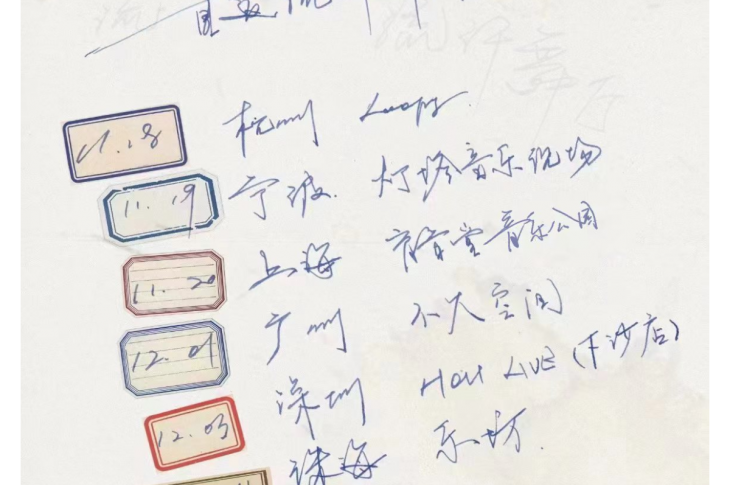 11.18 杭州 Loopy
11.19 宁波 灯塔音乐现场
11.20 上海 育音堂音乐公园
12.01 广州 不大空间
12.03 深圳 HOU LIVE (下沙店)
珠海 乐坊